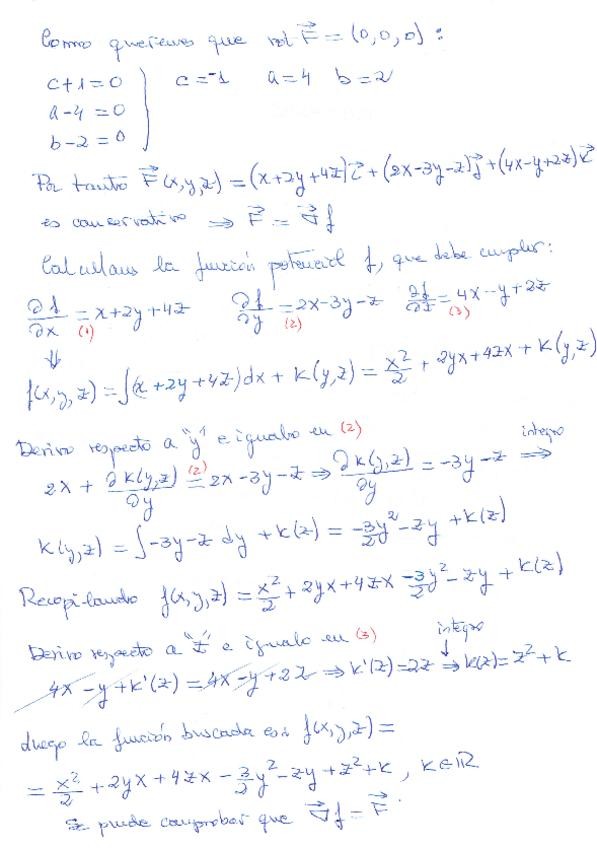 Como queremos que rot F⃗ = (0,0,0):
c+1=0 c=-1 a=4 b=2
a-4=0
b-2=0
Por tanto F⃗(x,y,z) = (x+2y+4z)i⃗+(2x-3y-z)j⃗+(4x-y+2z)k⃗
es conservativo ⟹ F⃗ = ∇⃗f
Calculamos la función potencial f, que debe cumplir:
∂f/∂x =(1) x+2y+4z ∂f/∂y =(2) 2x-3y-z ∂f/∂z =(3) 4x-y+2z
⇓
f(x,y,z) = ∫(x+2y+4z)dx + K(y,z) = x²/2 + 2yx+4zx + K(y,z)
Derivo respecto a "y" e igualo en (2)
2x + ∂K(y,z)/∂y =(2) 2x-3y-z ⟹ ∂K(y,z)/∂y = -3y-z integro ⟹
K(y,z) = ∫-3y-z dy + K(z) = -3/2 y² - zy + K(z)
Recopilando f(x,y,z) = x²/2 + 2yx+4zx - 3/2 y² - zy + K(z)
Derivo respecto a "z" e igualo en (3) integro ↓
4x-y+K'(z) = 4x-y+2z ⟹ K'(z)=2z ⟹ K(z)=z²+K
Luego la función buscada es: f(x,y,z) =
= x²/2 + 2yx + 4zx - 3/2 y² - zy + z² + K, K∈ℝ
Se puede comprobar que ∇⃗f = F⃗.